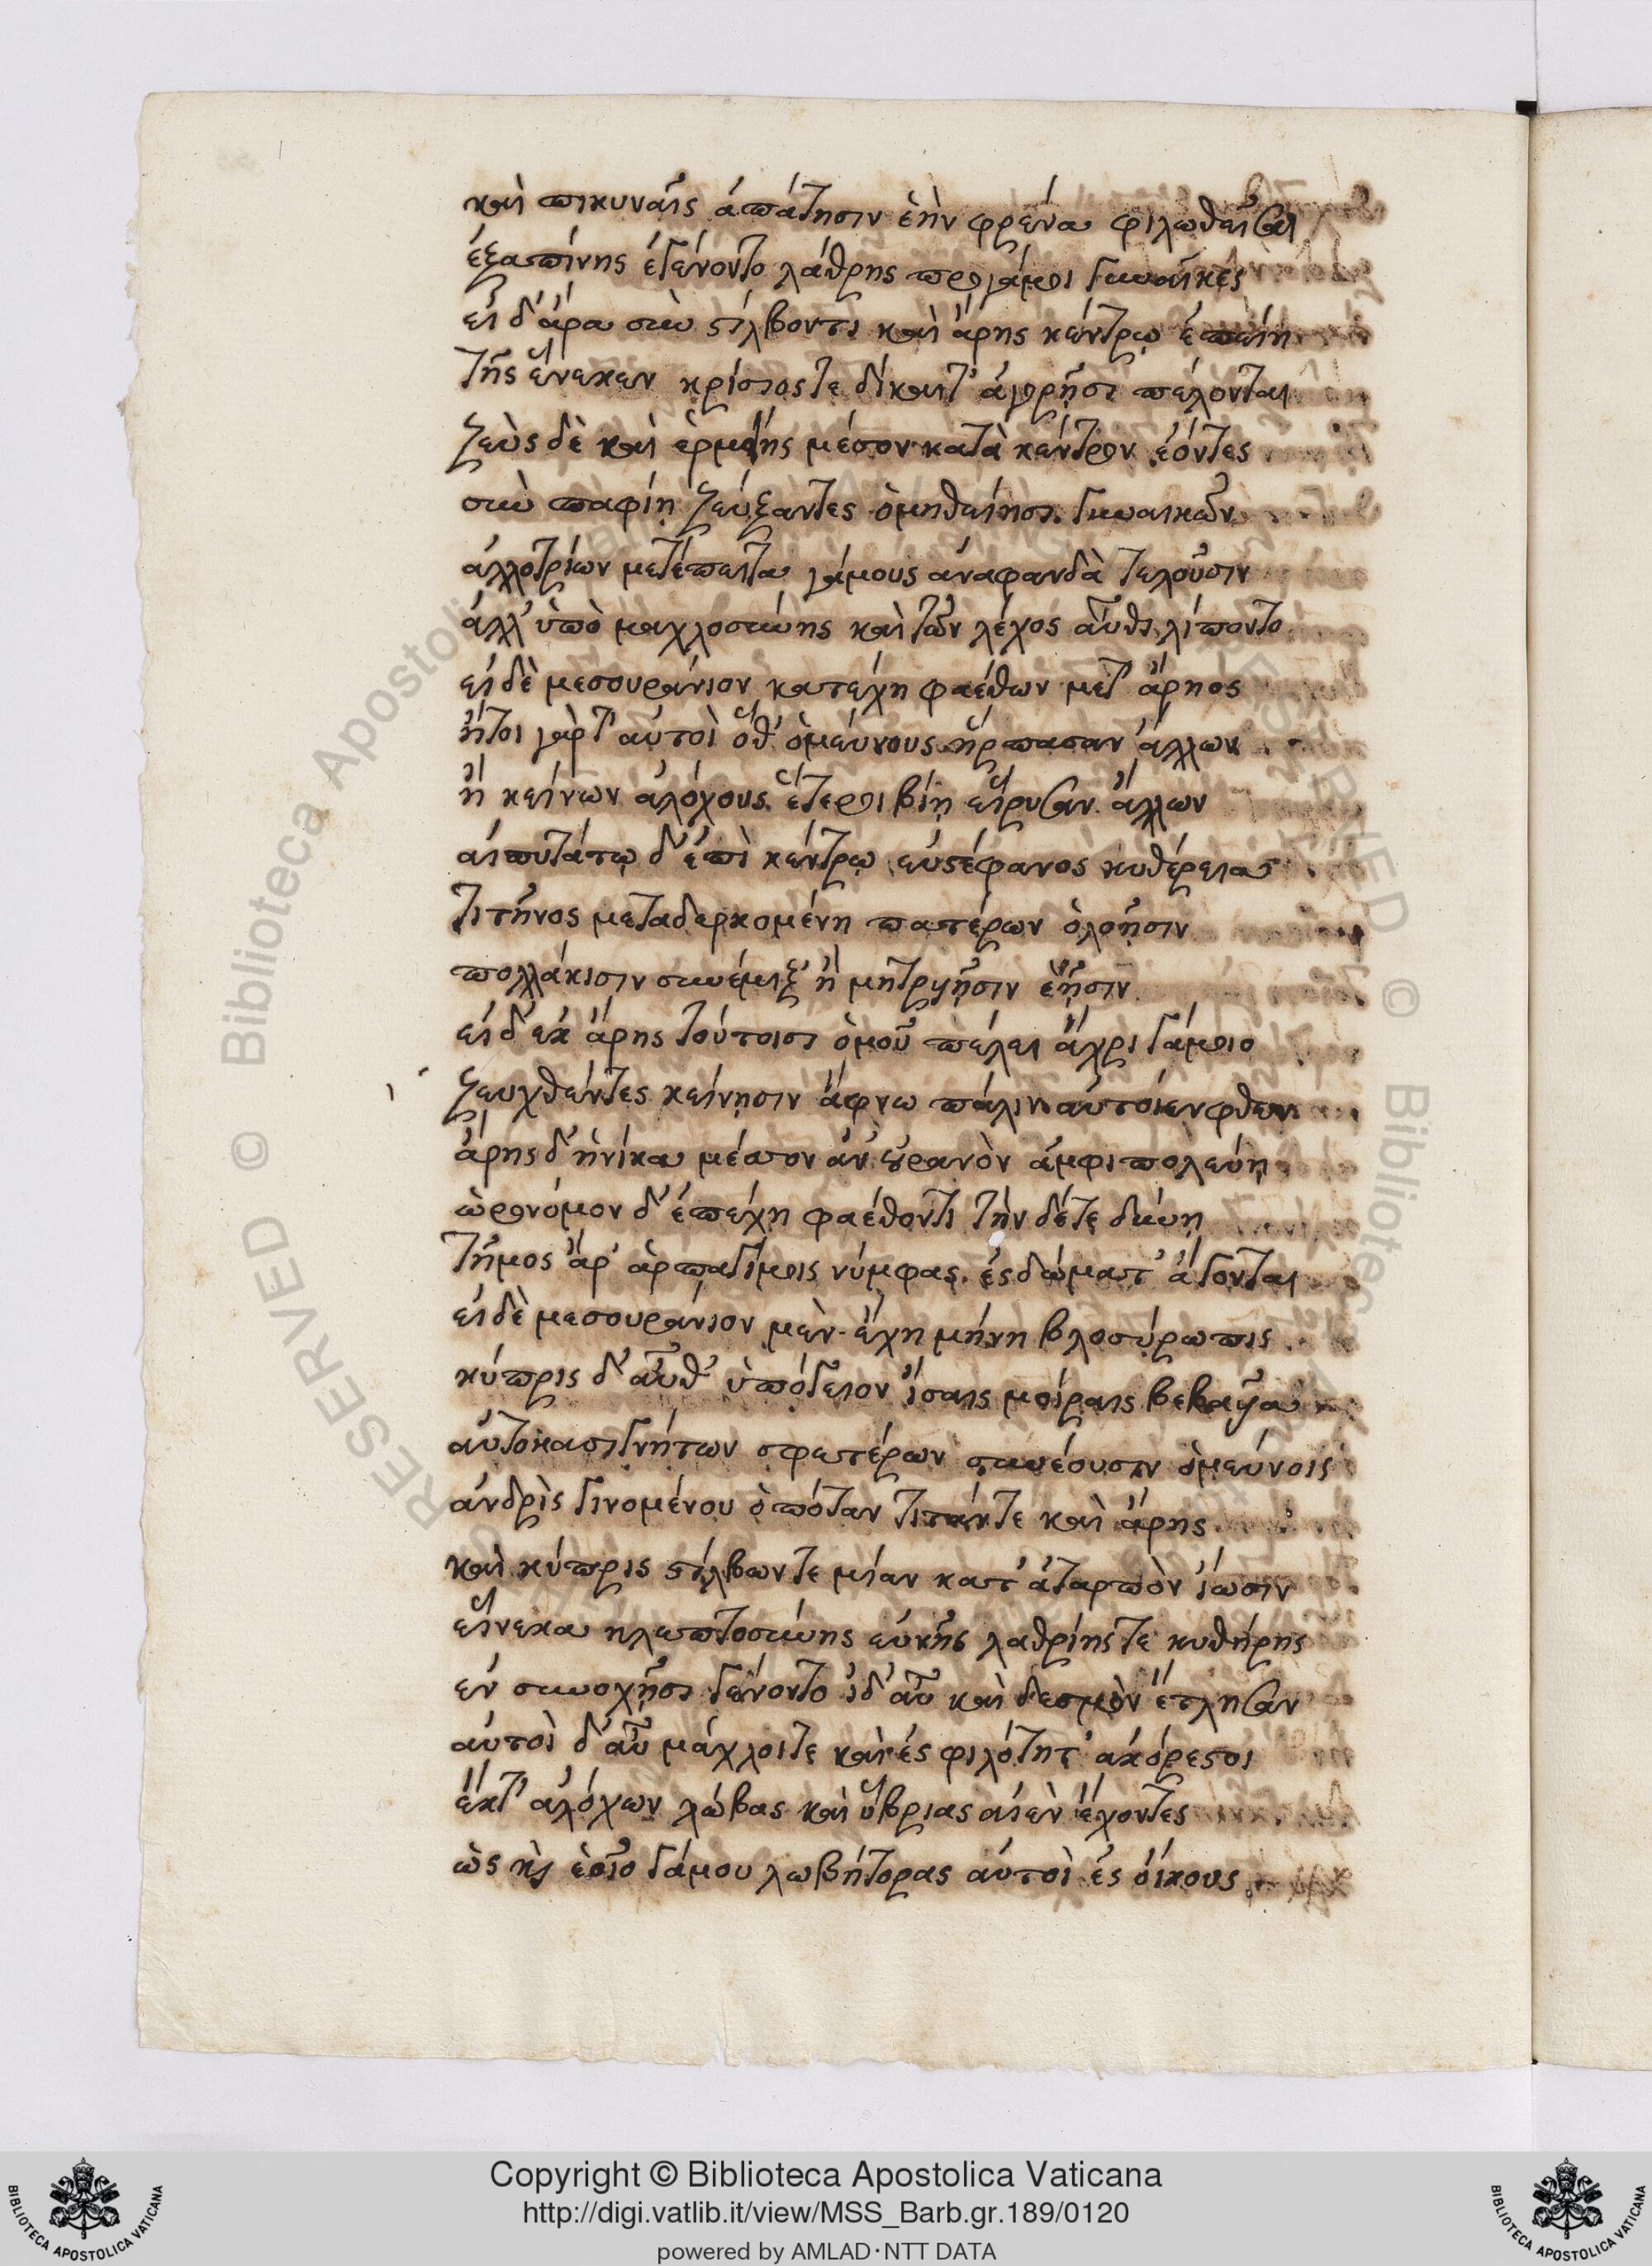 καὶ πικυναῖς ἀπάτησιν ἑὴν φρένα φιλωθεῖσαι
ἐξαπίνης ἐγένοντο λάθρης προγάμοι γυναῖκες
εἰ δ' ἄρα σὺν στίλβοντι καὶ ἄρης κέντρῳ ἐπείη
τῆς ἕνεκεν κρίσιος τε δίκαι τ' ἀγορῇσι πέλονται
ζεὺς δὲ καὶ ἑρμείης μέσον κατὰ κέντρον ἐόντες
σὺν παφίῃ ζεύξαντες ὁμηθείῃσι γυναικῶν
ἀλλοτρίων μετέπειτα γάμους ἀναφανδὰ τελοῦσιν
ἀλλ' ὑπὸ μαχλοσύνης καὶ τῶν λέχος αὖθι λίποντο
εἰ δὲ μεσουράνιον κατέχῃ φαέθων μετ' ἄρηος
ἤτοι γάρ τ' αὐτοὶ ὅθ' ὁμεύνους ἥρπασαν ἄλλων
ἢ κείνων ἀλόχους ἕτεροι βίῃ εἴρυσαν ἄλλων
αἰπυτάτῳ δ' ἐπὶ κέντρῳ εὐστέφανος κυθέρεια
τιτῆνος μεταδερκομένη πατέρων ὀλοῇσιν
πολλάκισιν συνέμιξ' ἢ μητρυιῇσιν ἑῇσιν
εἰ δ' ἐκ ἄρης τούτοισι ὁμοῦ πέλει ἄχρι γάμοιο
ζευχθέντες κείνῃσιν ἄφνω πάλιν αὐτοὶ ενφθεν
ἄρης δ' ἡνίκα μέσον ἀν' οὐρανὸν ἀμφιπολεύῃ
ὡρονόμον δ' ἐπέχῃ φαέθοντι τὴν δέτε δύνῃ
τῆμος ἄρ' ἁρπαγίμοις νύμφας ἐς δώματ' ἄγονται
εἰ δὲ μεσουράνιον μὲν ἔχῃ μήνη βλοσύρωπις
κύπρις δ' αὖθ' ὑπόγειον ἴσαις μοίραις βεβαυῖα
αὐτοκασιγνήτων σφετέρων συνέουσιν ὁμεύνοις
ἀνδρὶς γινομένου ὁπόταν τιτάν τε καὶ ἄρης
καὶ κύπρις στίλβων τε μίαν κατ' ἀταρπὸν ἴωσιν
εἵνεκα κλεπτοσύνης εὐνῆς λαθρίης τε κυθήρης
ἐν συνοχῇσι γένοντο ἰδ' αὖ καὶ δεσμὸν ἔτλησαν
αὐτοὶ δ' αὖ μάχλοι τε καὶ ἐς φιλότητ' ἀκόρεστοι
ἔκ τ' ἀλόχων λώβας καὶ ὕβριας αἰὲν ἔχοντες
ὡς καὶ ἑοῖο γάμου λωβήτορας αὐτοὶ ἐς οἴκους
Copyright © Biblioteca Apostolica Vaticana
http://digi.vatlib.it/view/MSS_Barb.gr.189/0120
powered by AMLAD·NTT DATA